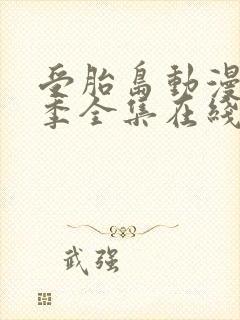 受胎島動漫
季全集在綫
武强